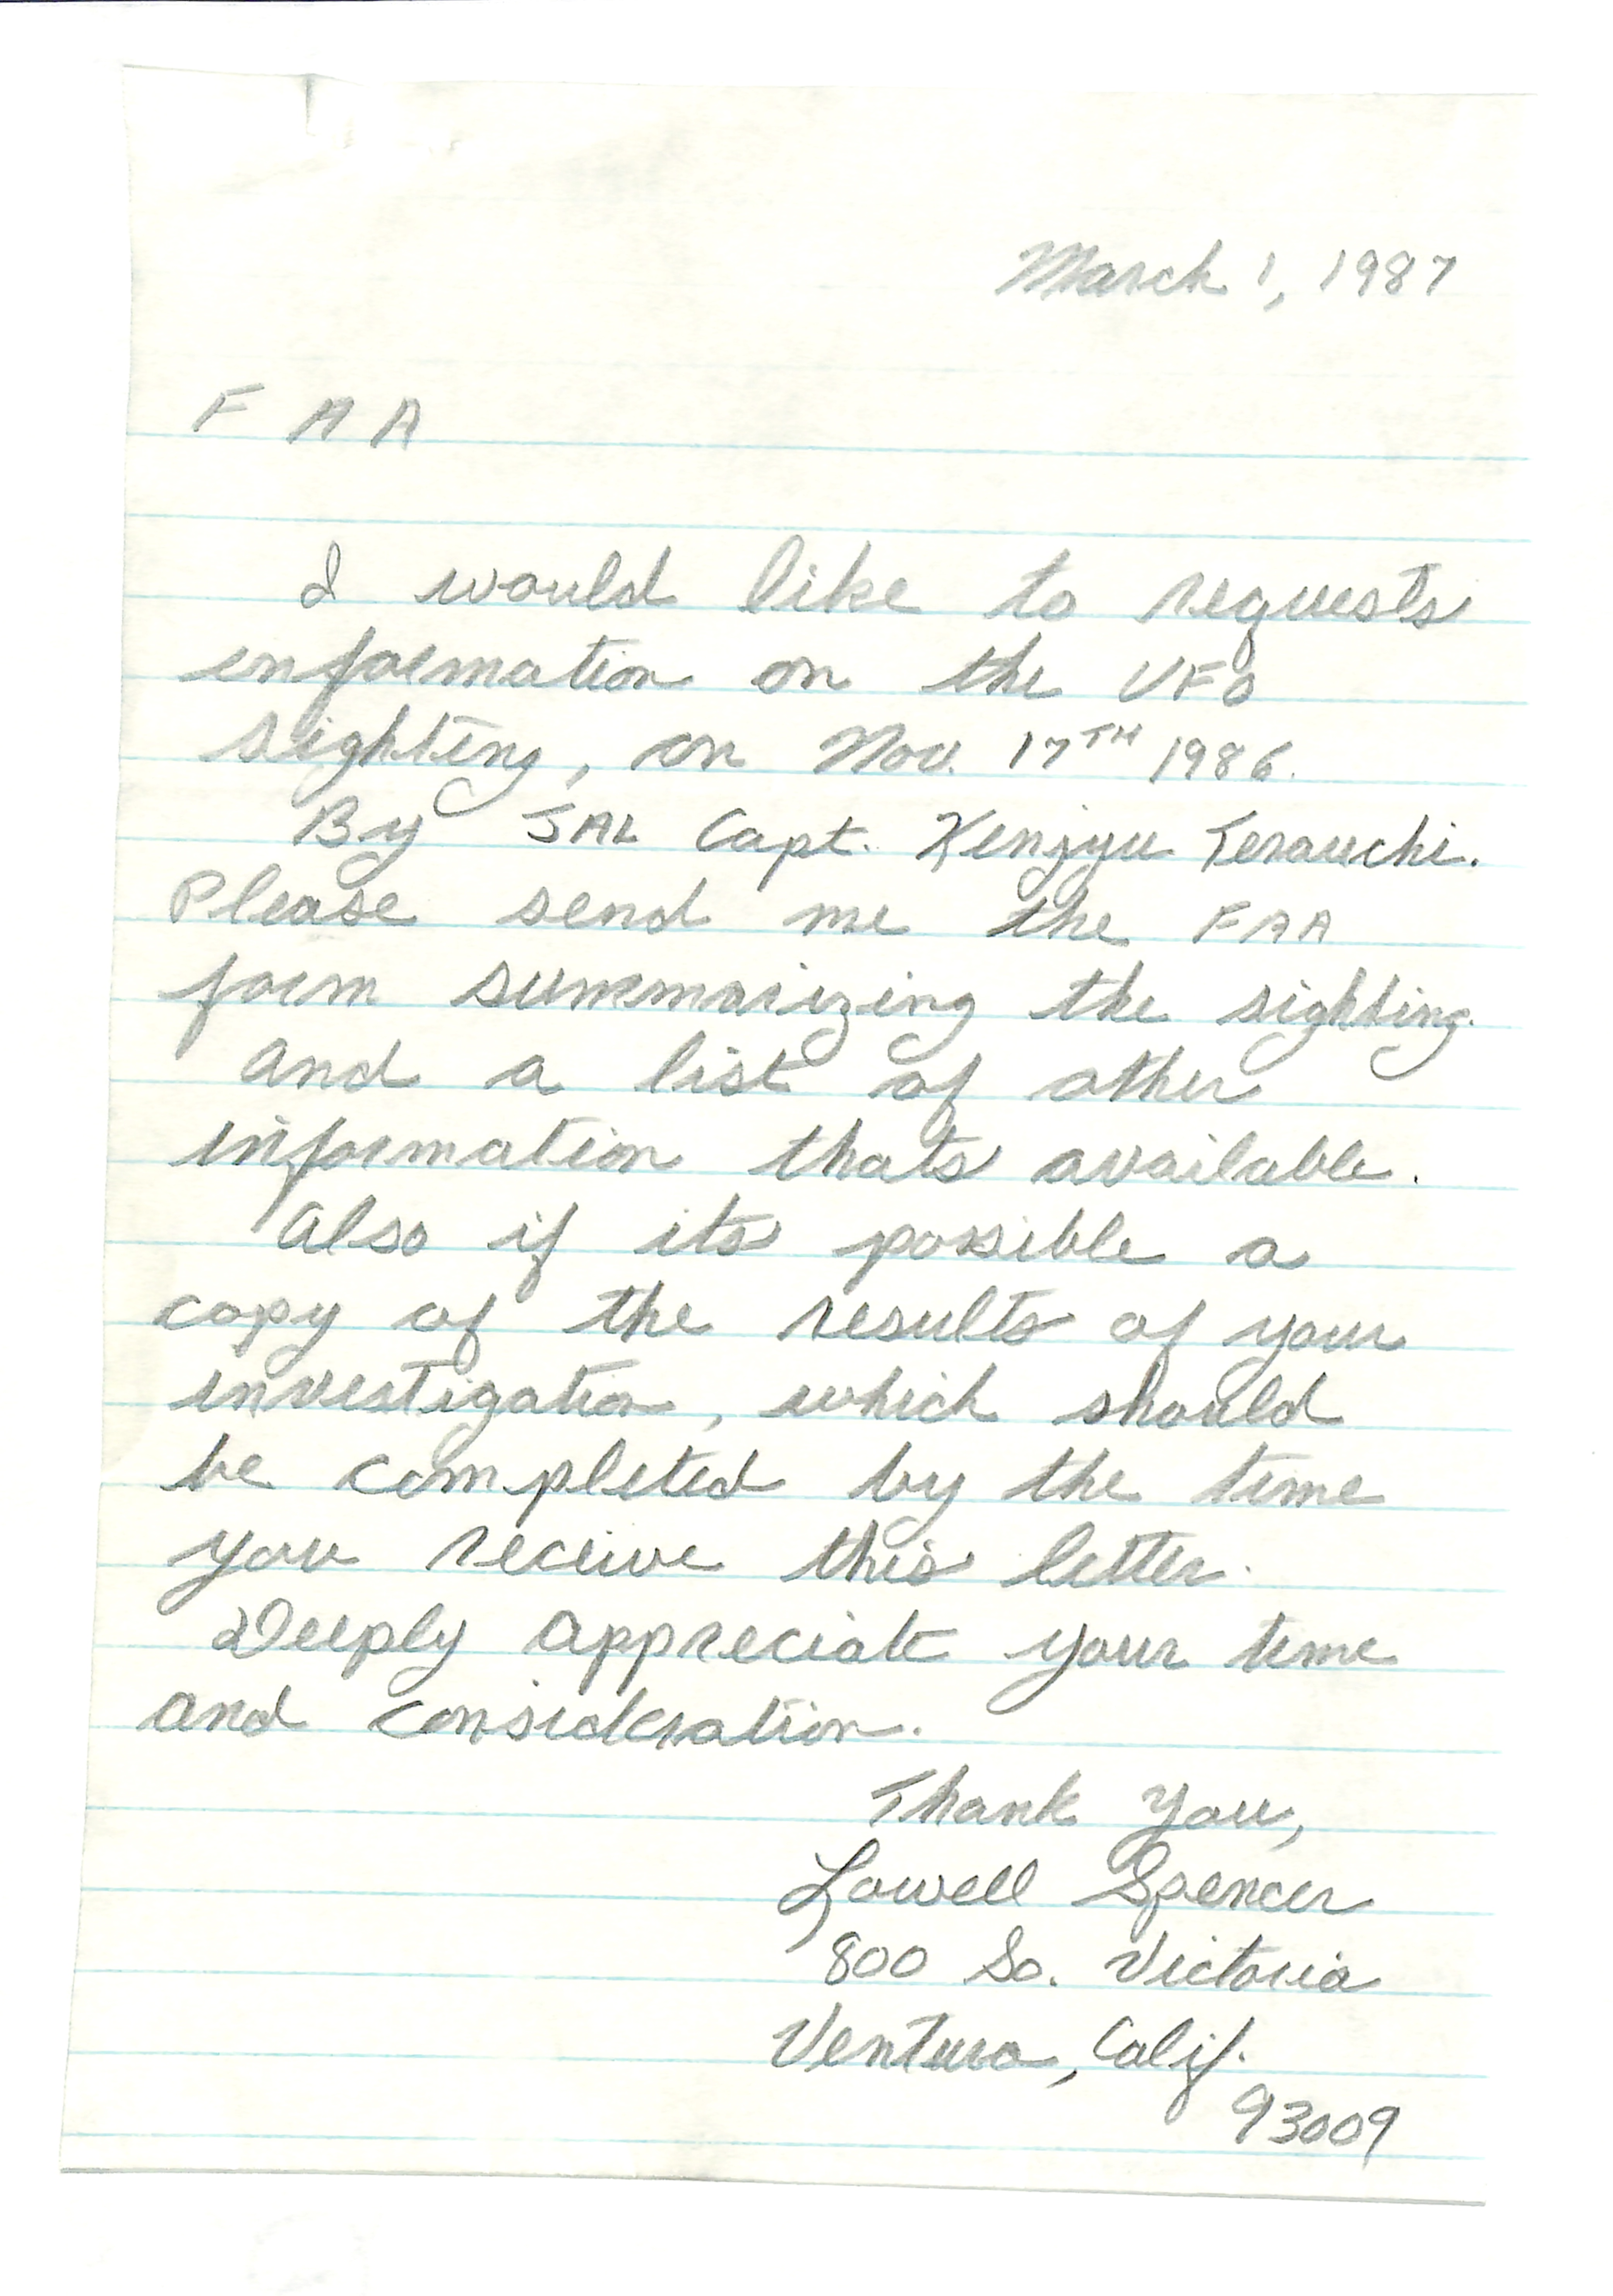 March 1, 1987
F A A
I would like to requests
information on the UFO
sighting, on Nov. 17TH 1986.
By JAL Capt. Kenjyu Terauchi.
Please send me the FAA
form summarizing the sighting.
And a list of other
information thats available.
Also if its possible a
copy of the results of your
investigation, which should
be completed by the time
you receive this letter.
Deeply appreciate your time
and consideration.
Thank You,
Lowell Spencer
800 So. Victoria
Ventura, Calif.
93009